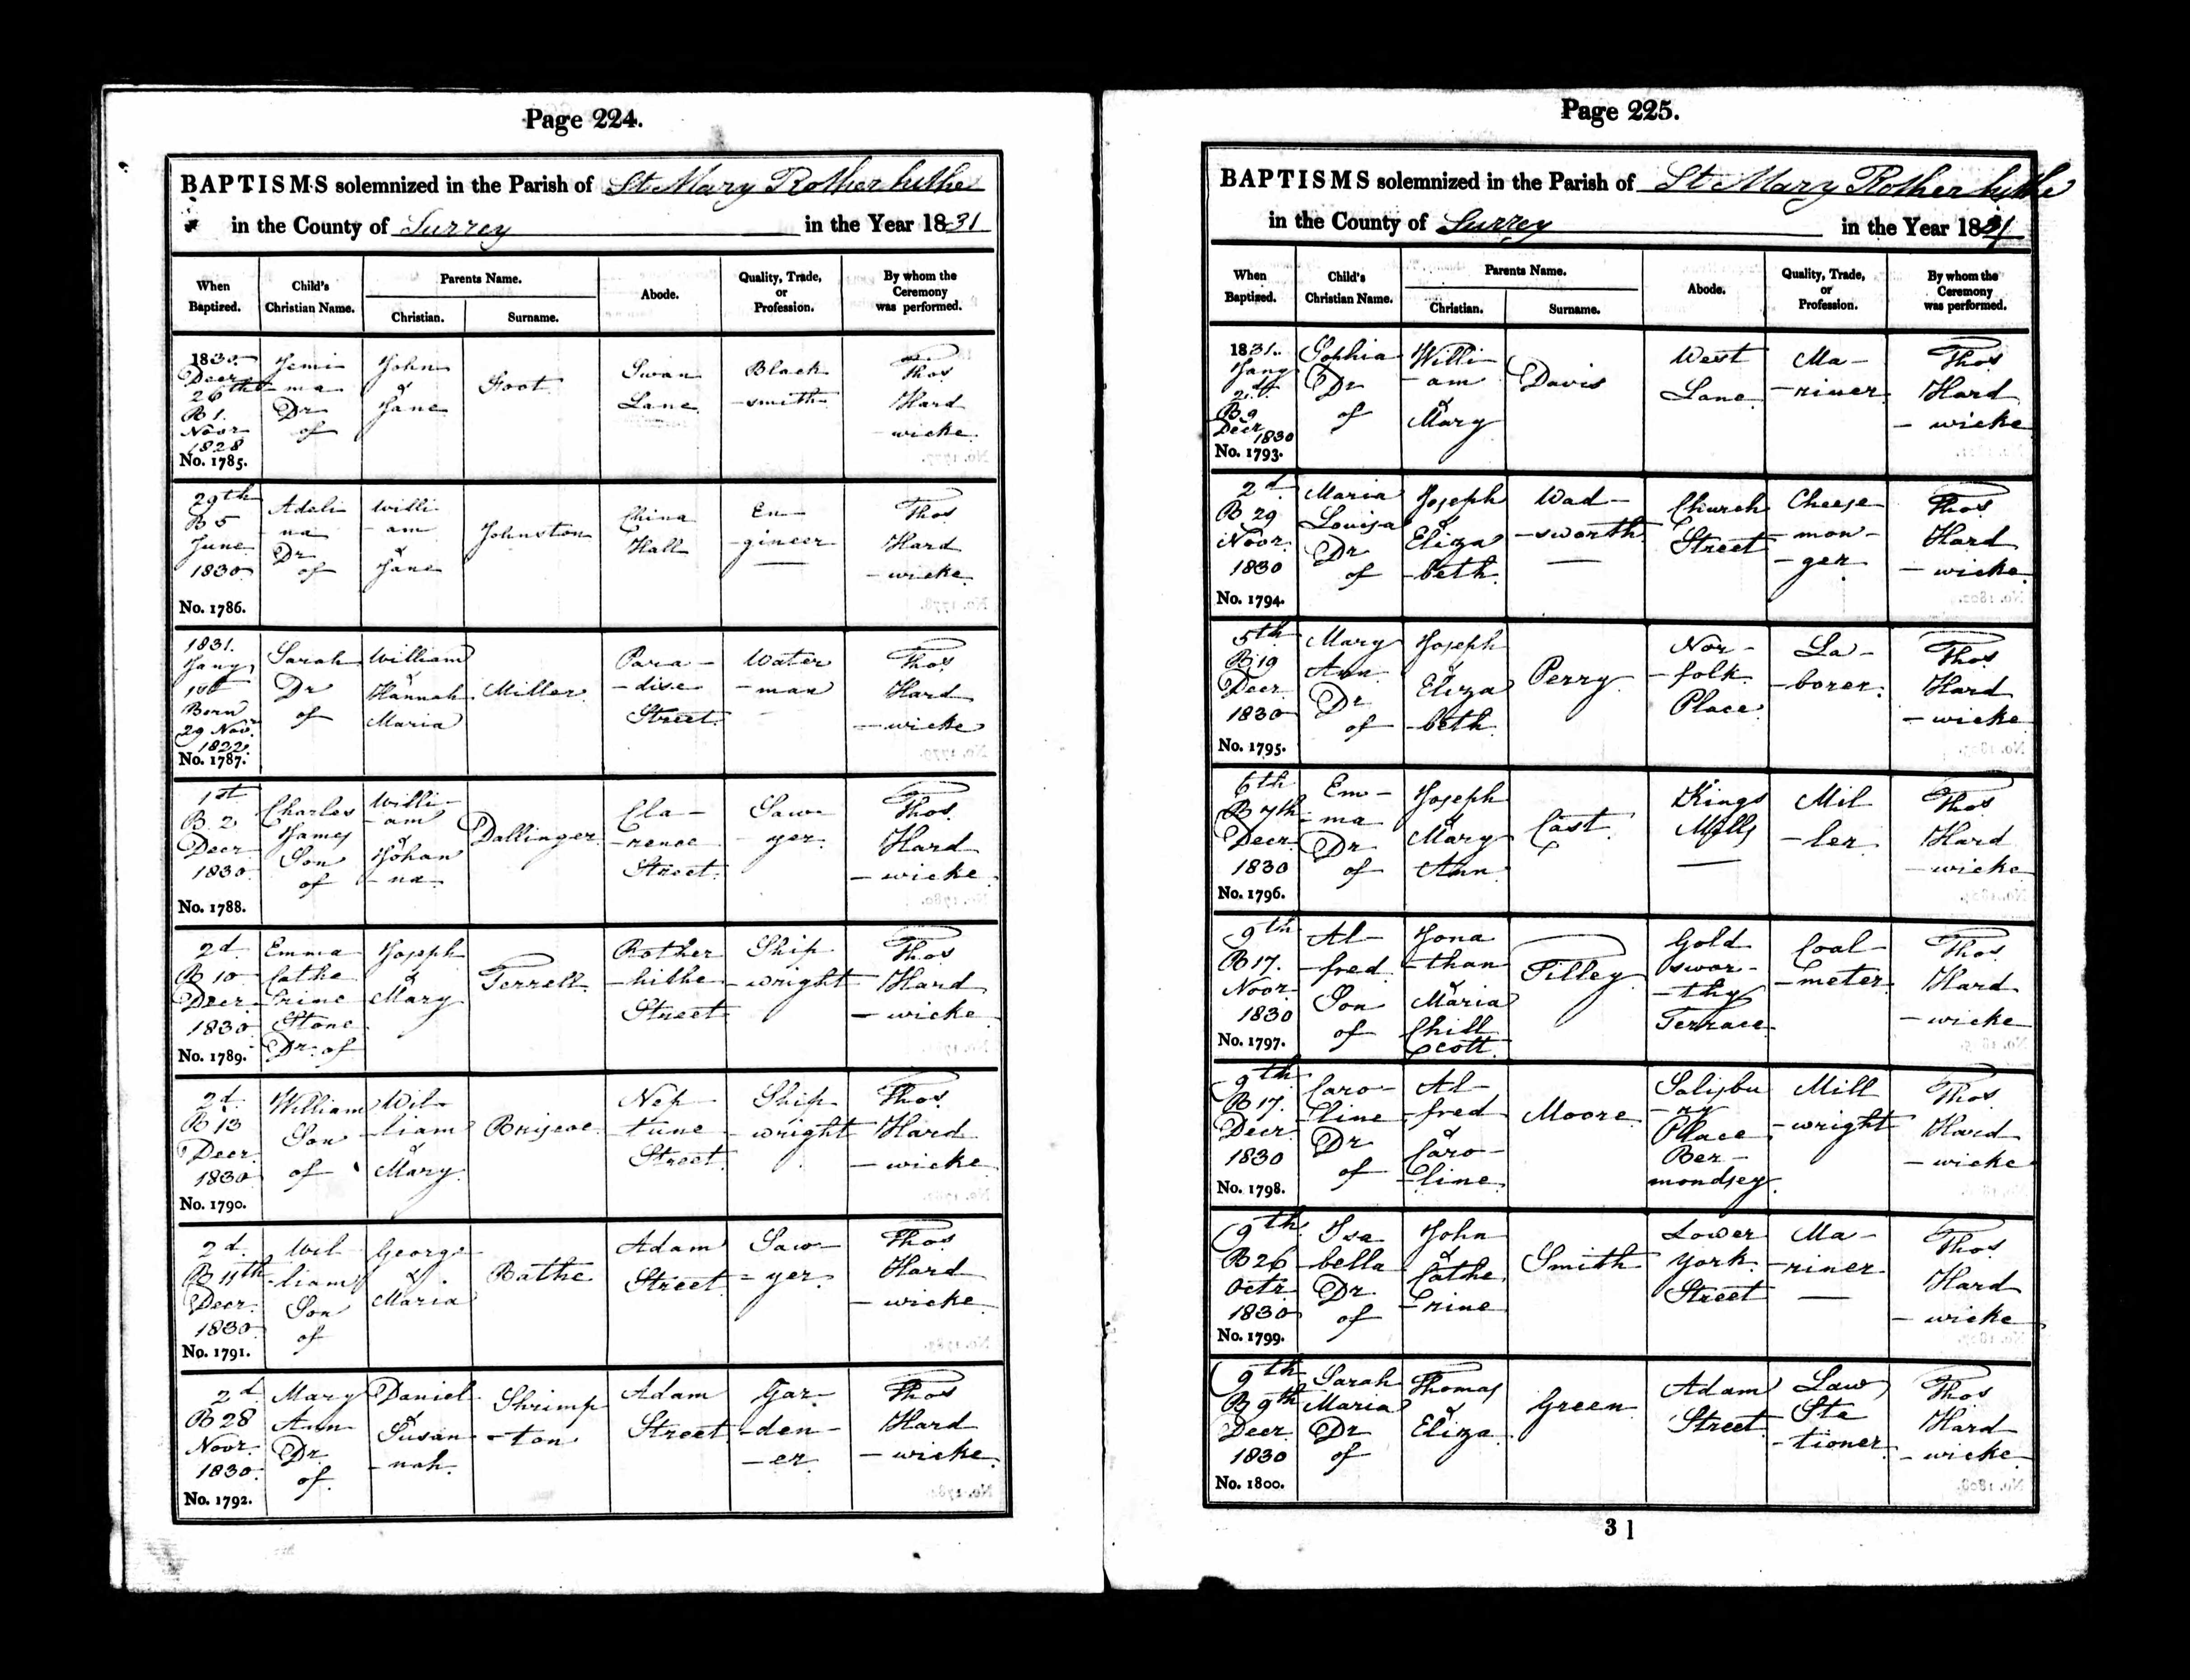 Page 224.
BAPTISMS solemnized in the Parish of St Mary Rotherhithe
in the County of Surrey in the Year 1831
When Baptized.
Child's Christian Name.
Parents Name.
Christian.
Surname.
Abode.
Quality, Trade, or Profession.
By whom the Ceremony was performed.
1830
Decr
26th
B 1.
Novr
1828
No. 1785.
Jemi
- ma
Dr
of
John
&
Jane
Foot
Swan
Lane
Black
- smith
Thos
Hard
- wicke
29th
B 5
June
1830
No. 1786.
Adeli
- na
Dr
of
Willi
- am
&
Jane
Johnston
China
Hall
En-
- gineer
Thos
Hard
- wicke
1831.
Jany
1st
Born
29 Novr
1822.
No. 1787.
Sarah
Dr
of
William
&
Hannah
Maria
Miller
Para -
- dise
Street
Water
- man
Thos
Hard
- wicke
1st
B. 2
Decr
1830
No. 1788.
Charles
James
Son
of
Willi -
- am
&
Johan
- na
Dallinger
Cla -
- rence
Street
Saw
- yer
Thos
Hard
- wicke
2d
B 10
Decr
1830
No. 1789.
Emma
Cathe
- rine
Stone
Dr of
Joseph
&
Mary
Terrell
Rother
- hithe
Street
Ship
- wright
Thos
Hard
- wicke
2d
B 13
Decr
1830
No. 1790.
William
Son
of
Wil-
- liam
&
Mary
Briscoe
Nep
- tune
Street
Ship
- wright
Thos
Hard
- wicke
2d
B 11th
Decr
1830
No. 1791.
Wil
- liam
Son
of
George
&
Maria
Bathe
Adam
Street
Saw
- yer
Thos
Hard
- wicke
2d
B 28
Novr
1830
No. 1792.
Mary
Ann
Dr
of
Daniel
&
Susan
- nah
Shrimp
- ton
Adam
Street
Gar-
- den -
- er
Thos
Hard
- wicke
Page 225.
BAPTISMS solemnized in the Parish of St Mary Rotherhithe
in the County of Surrey in the Year 1831
When Baptized.
Child's Christian Name.
Parents Name.
Christian.
Surname.
Abode.
Quality, Trade, or Profession.
By whom the Ceremony was performed.
1831.
Jany
2d
B 9
Decr
1830
No. 1793.
Sophia
Dr
of
Willi -
- am
&
Mary
Davis
West
Lane
Ma -
- riner
Thos
Hard
- wicke
2d
B 29
Novr
1830
No. 1794.
Maria
Louisa
Dr
of
Joseph
&
Eliza
- beth
Wad -
- sworth
Church
Street
Cheese
- mon -
- ger
Thos
Hard
- wicke
5th
B 19
Decr
1830
No. 1795.
Mary
Ann
Dr
of
Joseph
&
Eliza
- beth
Perry
Nor -
- folk
Place
La -
- borer
Thos
Hard
- wicke
6th
B 7th
Decr
1830
No. 1796.
Em -
- ma
Dr
of
Joseph
&
Mary
Ann
Cast
Kings
Mills
Mil
- ler
Thos
Hard
- wicke
9th
B 17.
Novr
1830
No. 1797.
Al -
- fred
Son
of
Jona
- than
&
Maria
Chill
Scott
Tilley
Gold
swor -
- thy
Terrace
Coal -
- meter
Thos
Hard
- wicke
9th
B 17.
Decr
1830
No. 1798.
Caro -
- line
Dr
of
Al -
- fred
&
Caro -
- line
Moore
Salisbu
- ry
Place
Ber -
mondsey
Mill
- wright
Thos
Hard
- wicke
9th
B 26
Octr
1830
No. 1799.
Isa
- bella
Dr
of
John
&
Cathe
- rine
Smith
Lower
York
Street
Ma -
- riner
Thos
Hard
- wicke
9th
B 9th
Decr
1830
No. 1800.
Sarah
Maria
Dr
of
Thomas
&
Eliza
Green
Adam
Street
Law
Sta
- tioner
Thos
Hard
- wicke
31